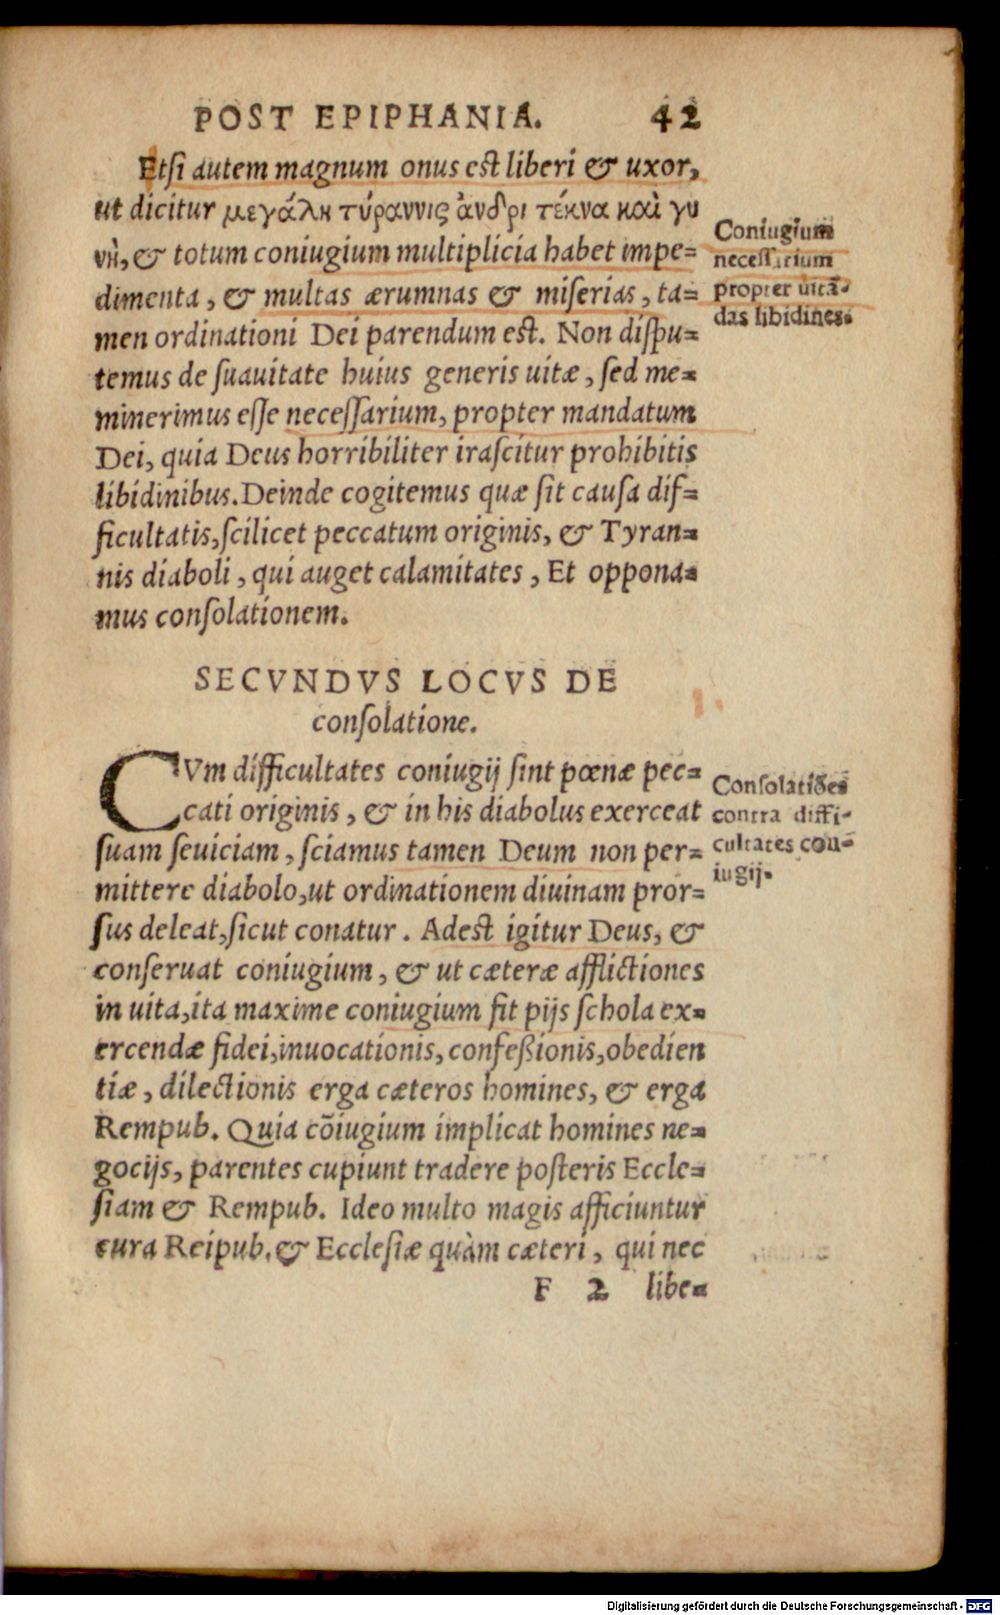 POST EPIPHANIA. 42
Etsi autem magnum onus est liberi & uxor,
ut dicitur μεγάλη τύραννις ἀνδρὶ τέκνα καὶ γυ
νὴ, & totum coniugium multiplicia habet impe=
dimenta, & multas ærumnas & miserias, ta=
men ordinationi Dei parendum est. Non dispu=
temus de suauitate huius generis uitæ, sed me=
minerimus esse necessarium, propter mandatum
Dei, quia Deus horribiliter irascitur prohibitis
libidinibus. Deinde cogitemus quæ sit causa dif=
ficultatis, scilicet peccatum originis, & Tyran=
nis diaboli, qui auget calamitates, Et oppona=
mus consolationem.
Coniugium
necessarium
propter uitā=
das libidines.
SECVNDVS LOCVS DE
consolatione.
CVm difficultates coniugij sint pœnæ pec=
cati originis, & in his diabolus exerceat
suam seuiciam, sciamus tamen Deum non per=
mittere diabolo, ut ordinationem diuinam pror=
sus deleat, sicut conatur. Adest igitur Deus, &
conseruat coniugium, & ut cæteræ afflictiones
in uita, ita maxime coniugium fit pijs schola ex=
ercendæ fidei, inuocationis, confeßionis, obedien
tiæ, dilectionis erga cæteros homines, & erga
Rempub. Quia cōiugium implicat homines ne=
gocijs, parentes cupiunt tradere posteris Eccle=
siam & Rempub. Ideo multo magis afficiuntur
cura Reipub. & Ecclesiæ quàm cæteri, qui nec
Consolatiões
contra diffi=
cultates con=
iugij.
F 2 libe=
Digitalisierung gefördert durch die Deutsche Forschungsgemeinschaft - DFG